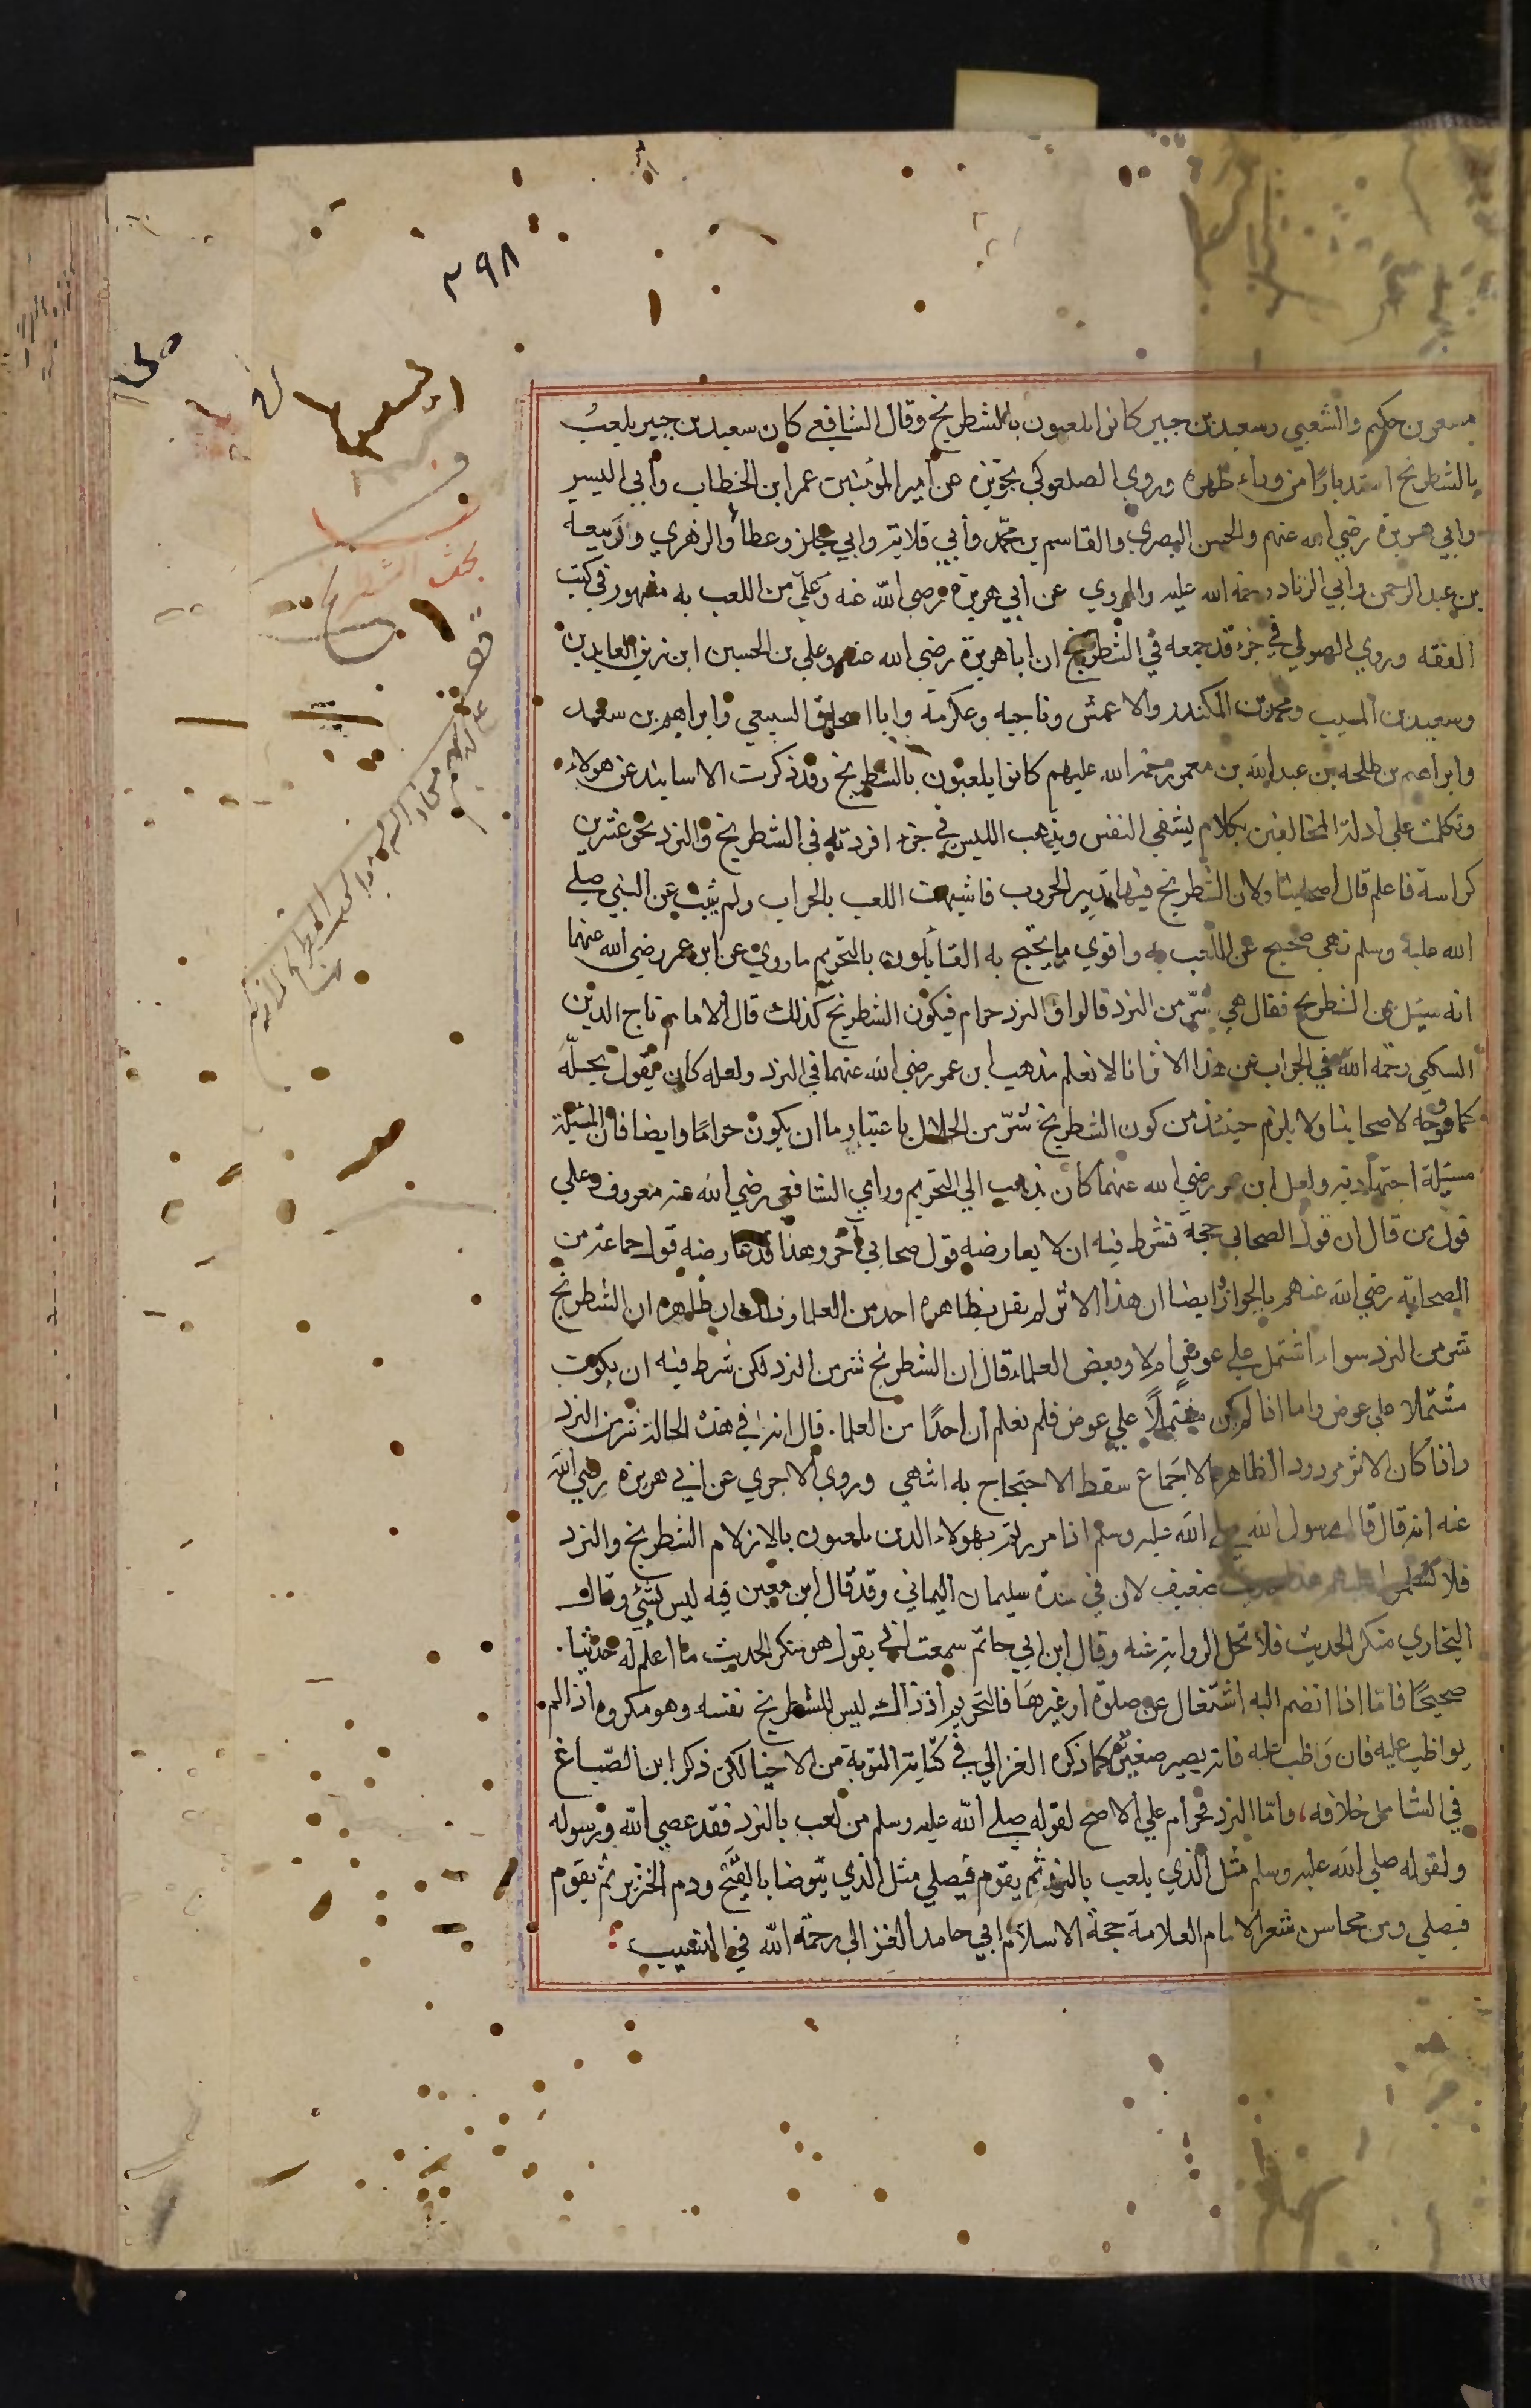 ٣٩٨
بحث الشطرنج
بن حكيم والشعبي وسعيد بن جبير كانوا يلعبون بالشطرنج وقال الشافعي كان سعيد بن جبير يلعب
بالشطرنج استدبارًا من وراء ظهره وروي الصلعوكي تجويزه عن أمير المؤمنين عمر ابن الخطاب وأبي اليسير
وابي هريرة رضي الله عنهم والحسن البصري والقاسم بن محمد وأبي قلابة وابي مجلز وعطاء والزهري وربيعة
بن عبد الرحمن وابي الزناد رحمة الله عليه والمروي عن ابي هريرة رضي الله عنه وعلي من اللعب به مشهور في كتب
الفقه وروي الصولي في جزء قد جمعه في الشطرنج ان ابا هريرة رضي الله عنه وعلي بن الحسين ابن زين العابدين
وسعيد بن المسيب ومحمد بن المكندر والاعمش وناجيه وعكرمة وابا اسحاق السبيعي وابراهيم بن سعد
وابراهيم بن طلحه بن عبد الله بن معمر رحمة الله عليهم كانوا يلعبون بالشطرنج وقد ذكرت الاسانيد عن هولاء
وتكلمت علي أدلة المخالفين بكلام يشفي النفس ويذهب اللبس في جزء افردته في الشطرنج والنرد نحو عشرين
كراسة فاعلم قال اصحابنا ولان الشطرنج فيها تدبير الحروب فاشبهت اللعب بالحراب ولم يثبت عن النبي صلي
الله عليه وسلم نهي صحيح عن اللعب به واقوي ما يحتج به القائلون بالتحريم ما روي عن ابن عمر رضي الله عنهما
انه سئل عن الشطرنج فقال هي شرّ من النرد قالوا والنرد حرام فيكون الشطرنج كذلك قال الامام تاج الدين
السبكي رحمه الله في الجواب عن هذا الاثر انا لا نعلم مذهب ابن عمر رضي الله عنهما في النرد ولعله كان يقول بحلّه
كما هو وجه لاصحابنا ولا يلزم حينئذ من كون الشطرنج شرّ من الحلال باعتبار ما ان يكون حرامًا وايضا فان المسئلة
مسئلة اجتهادية ولعل ابن عمر رضي الله عنهما كان يذهب الي التحريم وراي الشافعي رضي الله عنه معروف وعلي
قول من قال ان قول الصحابي حجة فشرط فيه ان لا يعارضه قول صحابي آخر وهذا قد عارضه قول جماعة من
الصحابة رضي الله عنهم بالجواز ايضا ان هذا الاثر لم يقل بظاهره احد من العلما وذلك ان ظاهره ان الشطرنج
شر من النرد سواء اشتمل علي عوضٍ ام لا وبعض العلماء قال ان الشطرنج شر من النرد لكن شرط فيه ان يكون
مشتملا علي عوض واما اذا لم يكن مشتملًا علي عوض فلم نعلم أن احدًا من العلما قال انه في هذه الحالة شر من النرد
واذا كان الاثر مردود الظاهر بالاجماع سقط الاحتجاج به انتهي وروي الاجري عن ابي هريرة رضي الله
عنه انه قال قال رسول الله صلي الله عليه وسلم اذا مررتم بهولاء الذين يلعبون بالازلام الشطرنج والنرد
فلا تسلموا عليهم هذا حديث ضعيف لان في سنده سليمان اليماني وقد قال ابن معين فيه ليس بشئي وقال
البخاري منكر الحديث فلا تحل الرواية عنه وقال ابن ابي حاتم سمعت ابي يقول هو منكر الحديث ما اعلم له حديثا
صحيحًا فاما اذا انضم اليه اشتغال عن صلوة او غيرها فالتحريم اذ ذاك ليس للشطرنج نفسه وهو مكروه اذا لم
يواظب عليه فان وَاظب عليه فانه يصير صغيرة كما ذكره الغزالي في كتابة التوبة من الاحيا لكن ذكر ابن الصّباغ
في الشامل خلافه، واما النرد فحرام علي الاصح لقوله صلي الله عليه وسلم من لعب بالنرد فقد عصي الله ورسوله
ولقوله صلي الله عليه وسلم مثل الذي يلعب بالنرد ثم يقوم فيصلي مثل الذي يتوضا بالقيح ودم الخنزير ثم يقوم
فيصلي ومن محاسن شعر الامام العلامة حجة الاسلام ابي حامد الغزالي رحمة الله في التغيب